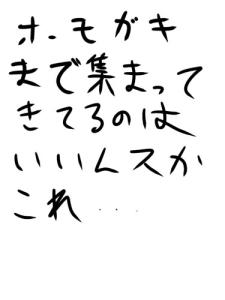 ホーモガキ
まで集まって
きてるのは
いいんスか
これ...